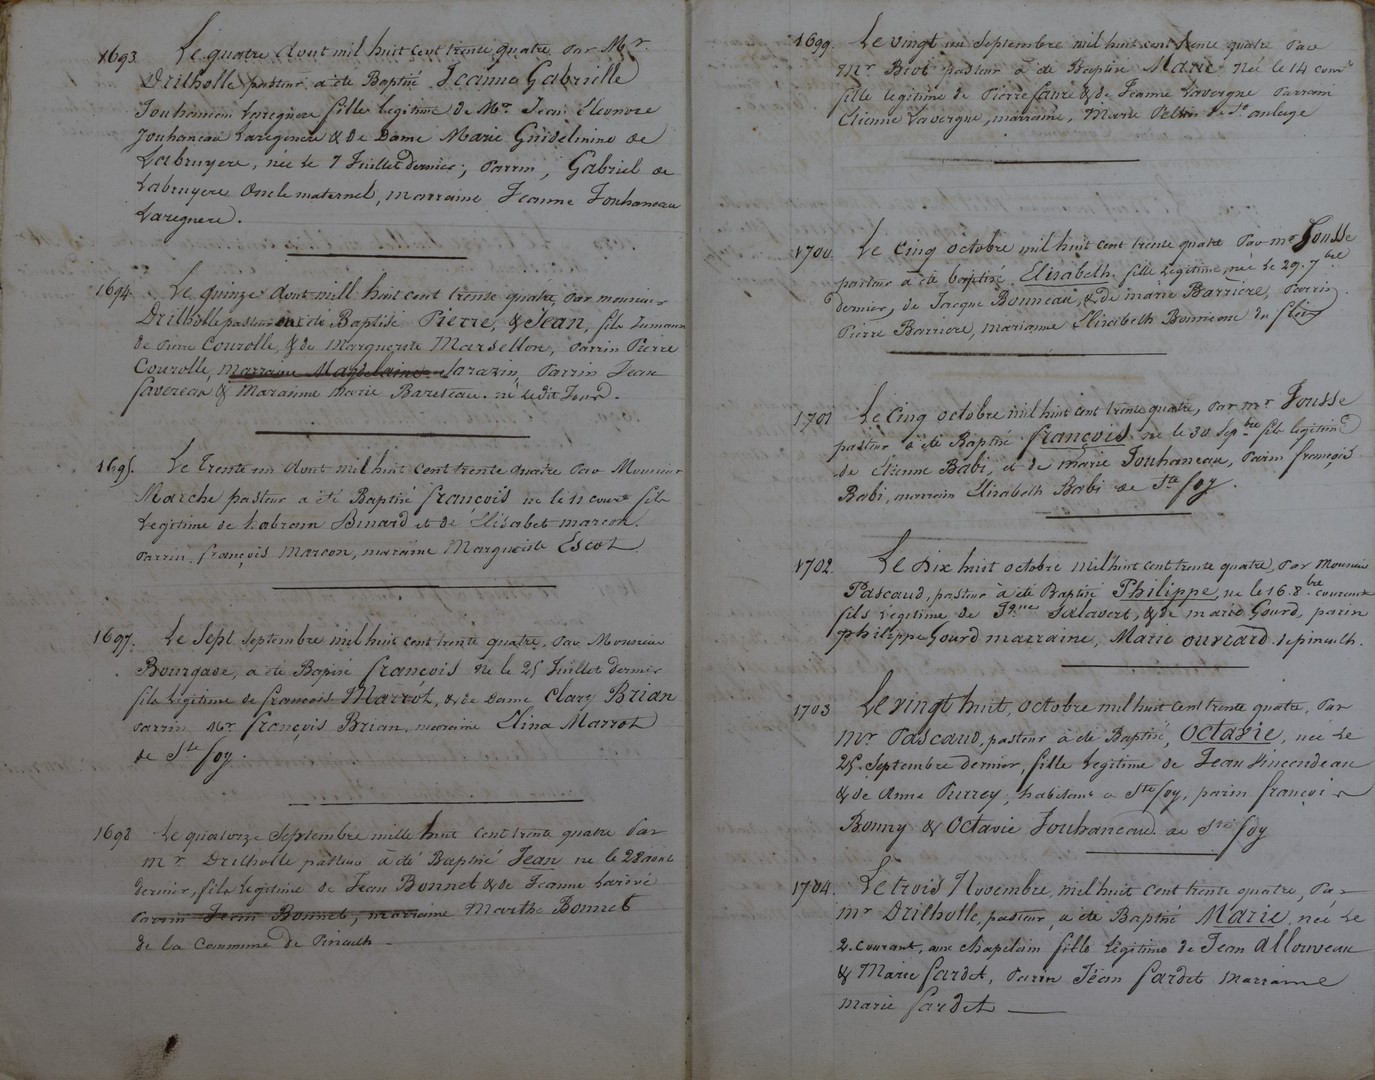 1693. Le quatre aout mil huit cent trente quatre par Mr.
Drilholle pasteur a été Baptisé Jeanne Gabrielle
Jouhaneau Laregnere fille legitime de Mr. Jean Eleonore
Jouhaneau Laregnere & de Dame Marie de
Labruyere, née le 7 Juillet dernier, Parrin, Gabriel de
Labruyere Oncle maternel, marraine Jeanne Jouhaneau
Laregnere.
1694. Le quinze aout mill huit cent trente quatre, par monsieur
Drilholle pasteur ont été Baptisé Pierre, & Jean, fils Jumaux
de Pierre Courolle, & de Marguerite Marsellon, Parrin Pierre
Courolle, marraine Magdelaine Sarazin, Parrin Jean
favereau & Marainne Marie Bareteau. né le dit Jour.
1695. Le trente un aout mil huit cent trente quatre par Monsieur
Marche pasteur a été Baptisé françois né le 11 courant fils
Legitime de Binard et de Elisabet marcon.
Parrin françois Marcon, maraine Marguerite Escot
1697. Le Sept Septembre mil huit cent trente quatre, par Monsieur
Bourgade, a été Baptisé françois né le 25 Juillet dernier
fils Légitime de françois Marrot, & de Dame Clary Brian
parrin Mr. françois Brian, maraine Elina Marrot
de Ste foy.
1698 Le quatorze Septembre mille huit cent trente quatre par
mr Drilholle pasteur à été Baptisé Jean né le 28 aout
dernier, fils Legitime de Jean Bonnet & de Jeanne
Parrin Jean Bonnet, maraine Marthe Bonnet
de la Commune de Pineuilh
1699. Le vingt un Septembre mil huit cent trente quatre par
Mr Biot pasteur à été Baptisé Marie née le 14 cour
fille legitime de Pierre faure & de Jeanne Lavergne Parrain
Etienne Lavergne, marraine, Marie de St. aulaye
1700. Le Cinq octobre mil huit cent trente quatre Par mr Jousse
pasteur à été baptisé Elisabeth fille Légitime, née le 29. 7bre
dernier, de Jacque Bonneau, & de marie Barriere, Parrin
Pierre Barriere, marianne Elisabeth du fleix
1701 Le Cinq octobre mil huit cent trente quatre, par mr Jousse
pasteur à été Baptisé françois né le 30 Sepbre fils legitime
de Etienne Babi, et de marie Jouhaneau, Parin françois
Babi, marrain Elisabeth Babi de Ste foy.
1702. Le Dix huit octobre mil huit cent trente quatre, Par Monsieur
Pascaud, pasteur à été Baptisé Philippe, né le 16. 8bre courant
fils Légitime de Jque & de marie Gourd, parin
philippe Gourd marraine, Marie ouvrard de pineuilh.
1703 Le vingt huit, octobre mil huit cent trente quatre, Par
Mr Pascaud, pasteur à été Baptisé, Octavie, née le
25. Septembre dernier, fille legitime de Jean Vincendeau
& de Anne Purrey, habitant a Ste foy, parin françoi
Bonny & Octavie Jouhaneau de Ste foy
1704. Le trois Novembre, mil huit cent trente quatre, Par
mr Drilholle, pasteur, a été Baptisé Marie, née Le
2. courant, aux chapelain fille légitime de Jean allouveau
& Marie Sardet, Parin Jean Sardet marraine
marie Sardet